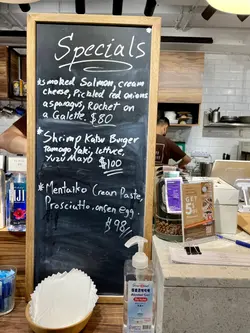 Specials
*smoked Salmon, cream
cheese, Pickled red onions
asparagus, Rocket on
a Galette. $80
*Shrimp Katsu Burger
Tamago Yaki, lettuce,
Yuzu Mayo $100
*Mentaiko Cream Paste,
Prosciutto, onsen egg.
$98
FIJI
GET
5